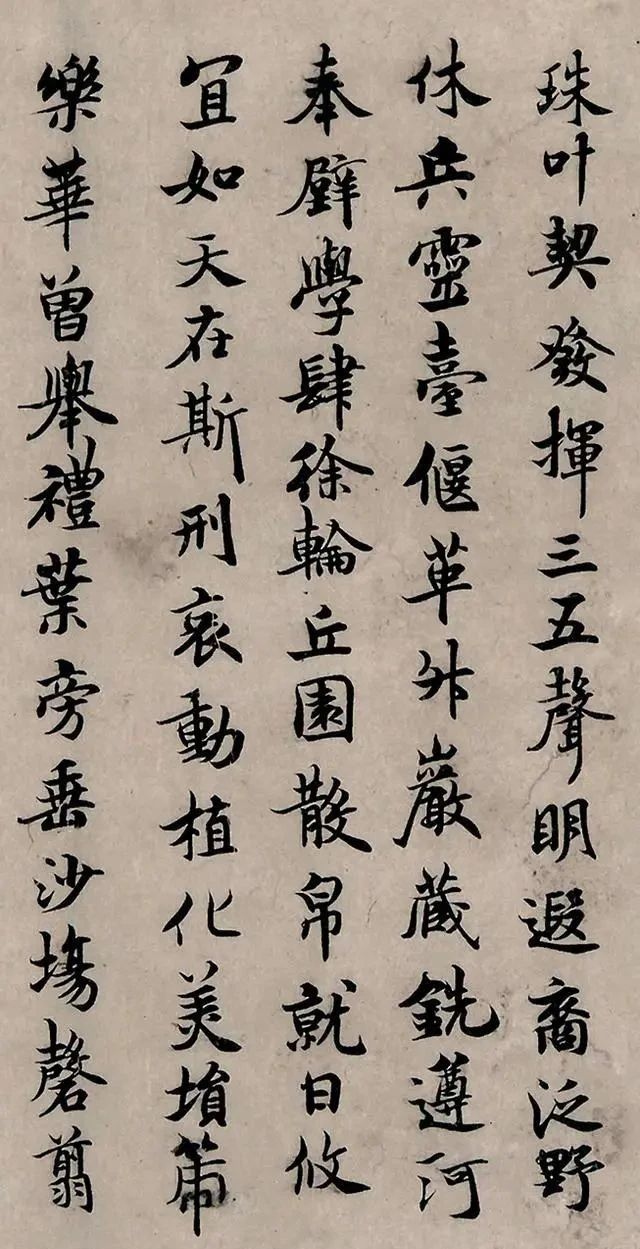 珠叶契發揮三五聲明遐裔泛野
休兵靈臺偃革升巖藏銑遵河
奉璧學肆徐輪丘園散帛就日攸
宜如天在斯刑哀動植化美塤箎
樂華曾舉禮葉旁垂沙場磬翦